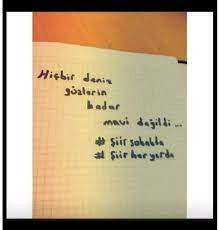 Hiçbir deniz
gözlerin
kadar
mavi değildi...
# Şiir sokakta
# Şiir her yerde